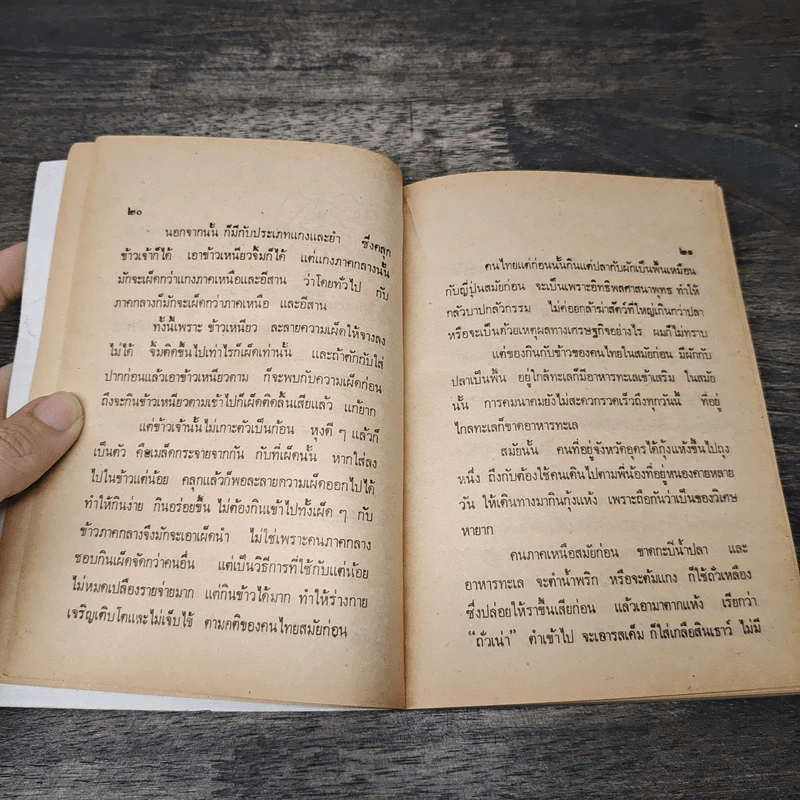 ๒๐
นอกจากนั้น ก็มีกับประเภทแกงและยำ ซึ่งคลุก
ข้าวเจ้าก็ได้ เอาข้าวเหนียวจิ้มก็ได้ แต่แกงภาคกลางนั้น
มักจะเผ็ดกว่าแกงภาคเหนือและอีสาน ว่าโดยทั่วไป กับ
ภาคกลางก็มักจะเผ็ดกว่าภาคเหนือ และอีสาน
ทั้งนี้เพราะ ข้าวเหนียว ละลายความเผ็ดให้จางลง
ไม่ได้ จิ้มติดขึ้นไปเท่าไรก็เผ็ดเท่านั้น และถ้าตักกับใส่
ปากก่อนแล้วเอาข้าวเหนียวตาม ก็จะพบกับความเผ็ดก่อน
ถึงจะกินข้าวเหนียวตามเข้าไปก็เผ็ดติดลิ้นเสียแล้ว แก้ยาก
แต่ข้าวเจ้านั้นไม่เกาะตัวเป็นก้อน หุงดี ๆ แล้วก็
เป็นตัว คือเมล็ดกระจายจากกัน กับที่เผ็ดนั้น หากใส่ลง
ไปในข้าวแต่น้อย คลุกแล้วก็พอละลายความเผ็ดออกไปได้
ทำให้กินง่าย กินอร่อยขึ้น ไม่ต้องกินเข้าไปทั้งเผ็ด ๆ กับ
ข้าวภาคกลางจึงมักจะเอาเผ็ดนำ ไม่ใช่เพราะคนภาคกลาง
ชอบกินเผ็ดจัดกว่าคนอื่น แต่เป็นวิธีการที่ใช้กับแต่น้อย
ไม่หมดเปลืองรายจ่ายมาก แต่กินข้าวได้มาก ทำให้ร่างกาย
เจริญเติบโตและไม่เจ็บไข้ ตามคติของคนไทยสมัยก่อน
๒๑
คนไทยแต่ก่อนนั้นกินแต่ปลากับผักเป็นพื้นเหมือน
กับญี่ปุ่นสมัยก่อน จะเป็นเพราะอิทธิพลศาสนาพุทธ ทำให้
กลัวบาปกลัวกรรม ไม่ค่อยกล้าฆ่าสัตว์ที่ใหญ่เกินกว่าปลา
หรือจะเป็นด้วยเหตุผลทางเศรษฐกิจอย่างไร ผมก็ไม่ทราบ
แต่ของกินกับข้าวของคนไทยในสมัยก่อน มีผักกับ
ปลาเป็นพื้น อยู่ใกล้ทะเลก็มีอาหารทะเลเข้าเสริม ในสมัย
นั้น การคมนาคมยังไม่สะดวกรวดเร็วถึงทุกวันนี้ ที่อยู่
ไกลทะเลก็ขาดอาหารทะเล
สมัยนั้น คนที่อยู่จังหวัดอุดรได้กุ้งแห้งขึ้นไปถุง
หนึ่ง ถึงกับต้องใช้คนเดินไปตามพี่น้องที่อยู่หนองคายหลาย
วัน ให้เดินทางมากินกุ้งแห้ง เพราะถือกันว่าเป็นของวิเศษ
หายาก
คนภาคเหนือสมัยก่อน ขาดกะปิน้ำปลา และ
อาหารทะเล จะตำน้ำพริก หรือจะต้มแกง ก็ใช้ถั่วเหลือง
ซึ่งปล่อยให้ราขึ้นเสียก่อน แล้วเอามาตากแห้ง เรียกว่า
"ถั่วเน่า" ตำเข้าไป จะเอารสเค็ม ก็ใส่เกลือสินเธาว์ ไม่มี